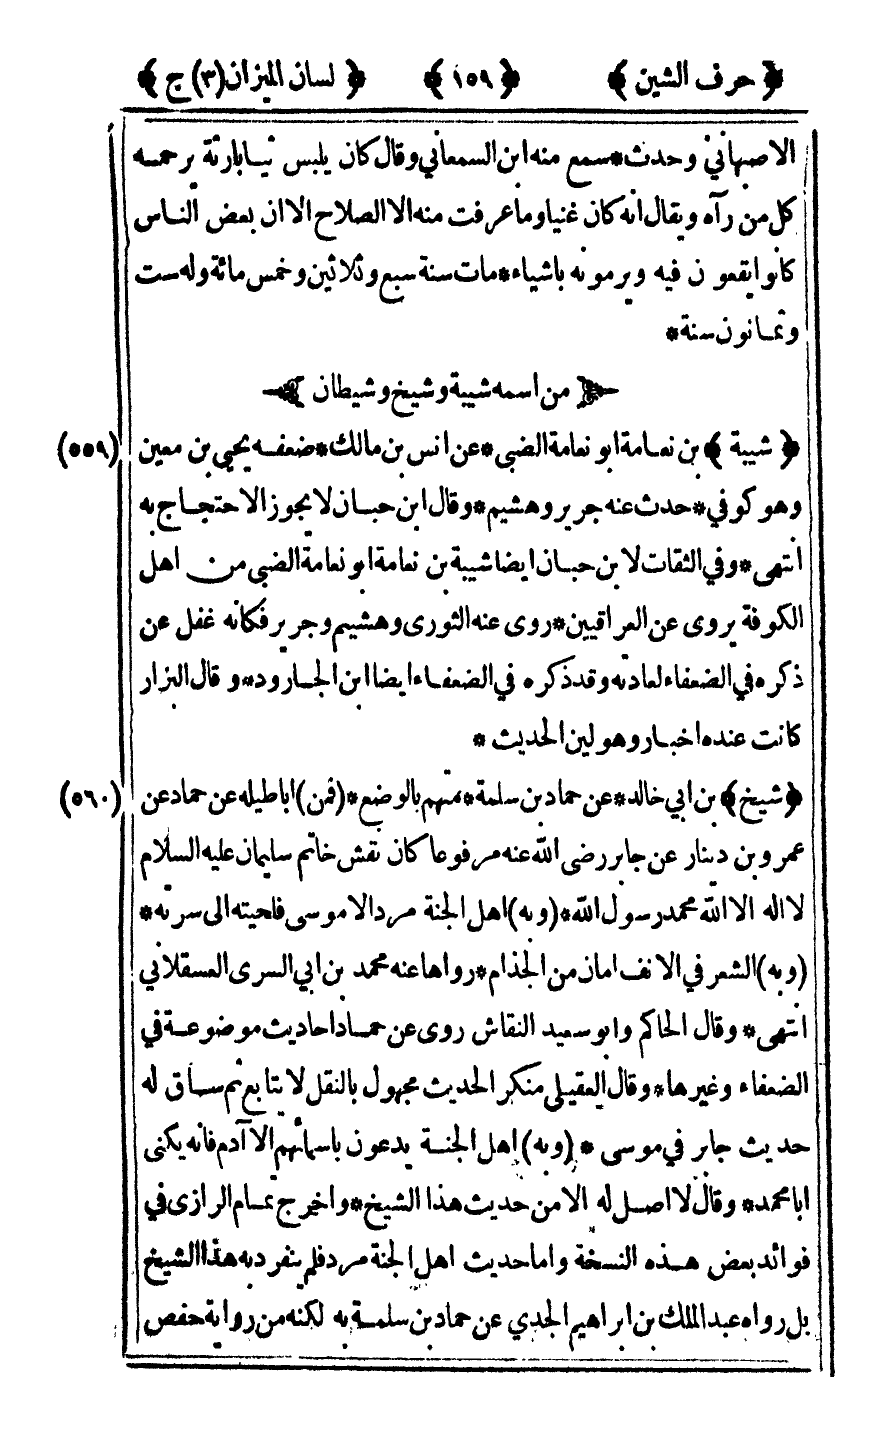 ﴿ حرف الشين ﴾ ﴿ ١٥٩ ﴾ ﴿ لسان الميزان (٣) ج ﴾
الاصبهاني وحدث * سمع منه ابن السمعاني وقال كان يلبس ثيابا رثة يرحمه
كل من رآه ويقال انه كان غنيا وما عرفت منه الا الصلاح الا ان بعض الناس
كانوا يقعون فيه ويرمونه باشياء * مات سنة سبع وثلاثين وخمس مائة وله ست
وثمانون سنة *
من اسمه شيبة وشيخ وشيطان
﴿ شيبة ﴾ بن نعامة ابو نعامة الضبي * عن انس بن مالك * ضعفه يحيى بن معين (٥٥٩)
وهو كوفي * حدث عنه جرير وهشيم * وقال ابن حبان لا يجوز الاحتجاج به
انتهى * وفي الثقات لابن حبان ايضا شيبة بن نعامة ابو نعامة الضبي من اهل
الكوفة يروى عن العراقيين * روى عنه الثورى وهشيم وجرير فكانه غفل عن
ذكره في الضعفاء لعادته وقد ذكره في الضعفاء ايضا ابن الجارود * وقال البزار
كانت عنده اخبار وهو لين الحديث *
﴿ شيخ ﴾ بن ابي خالد * عن حماد بن سلمة * متهم بالوضع * (فمن) اباطيله عن حماد عن (٥٦٠)
عمرو بن دينار عن جابر رضى الله عنه مرفوعا كان نقش خاتم سليمان عليه السلام
لا اله الا الله محمد رسول الله * (وبه) اهل الجنة مرد الا موسى فلحيته الى سرته *
(وبه) الشعر في الانف امان من الجذام * رواها عنه محمد بن ابي السرى العسقلاني
انتهى * وقال الحاكم وابو سعيد النقاش روى عن حماد احاديث موضوعة في
الضعفاء وغيرها * وقال العقيلي منكر الحديث مجهول بالنقل لا يتابع ثم ساق له
حديث جابر في موسى * (وبه) اهل الجنة يدعون باسمائهم الا آدم فانه يكنى
ابا محمد * وقال لا اصل له الا من حديث هذا الشيخ * واخرج تمام الرازى في
فوائد بعض هذه النسخة واما حديث اهل الجنة مرد فلم ينفرد به هذا الشيخ
بل رواه عبد الملك بن ابراهيم الجدي عن حماد بن سلمة به لكنه من رواية حفص